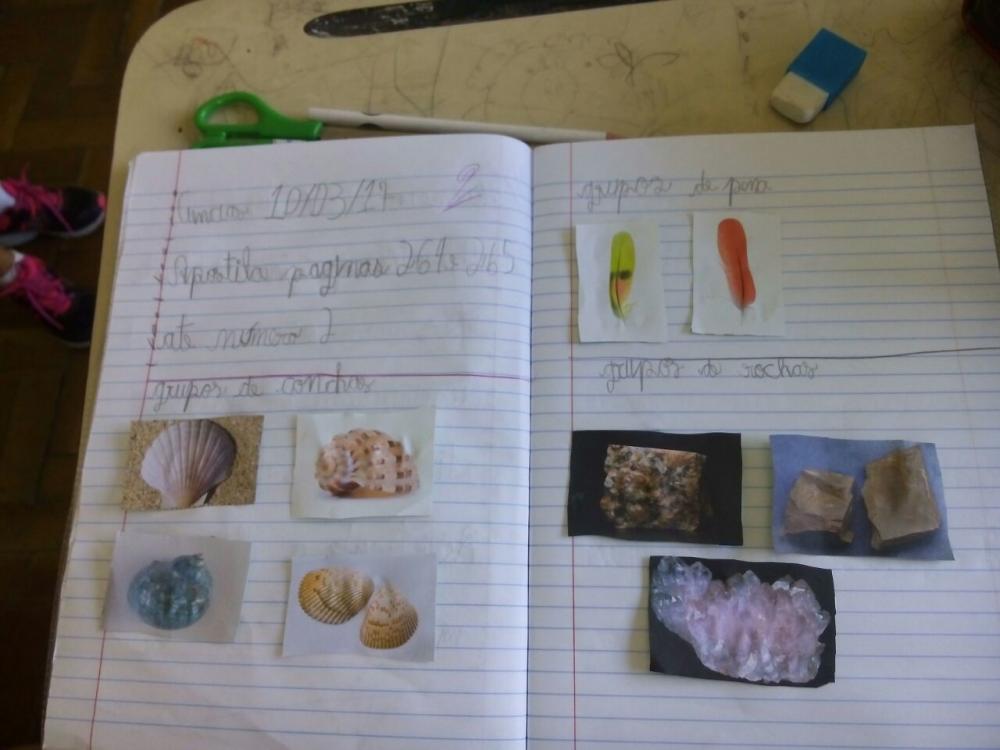 Ciências 10/03/17
2
Apostila paginas 264 e 265
ate número 2
grupos de conchas
grupos de pena
grupos de rochas